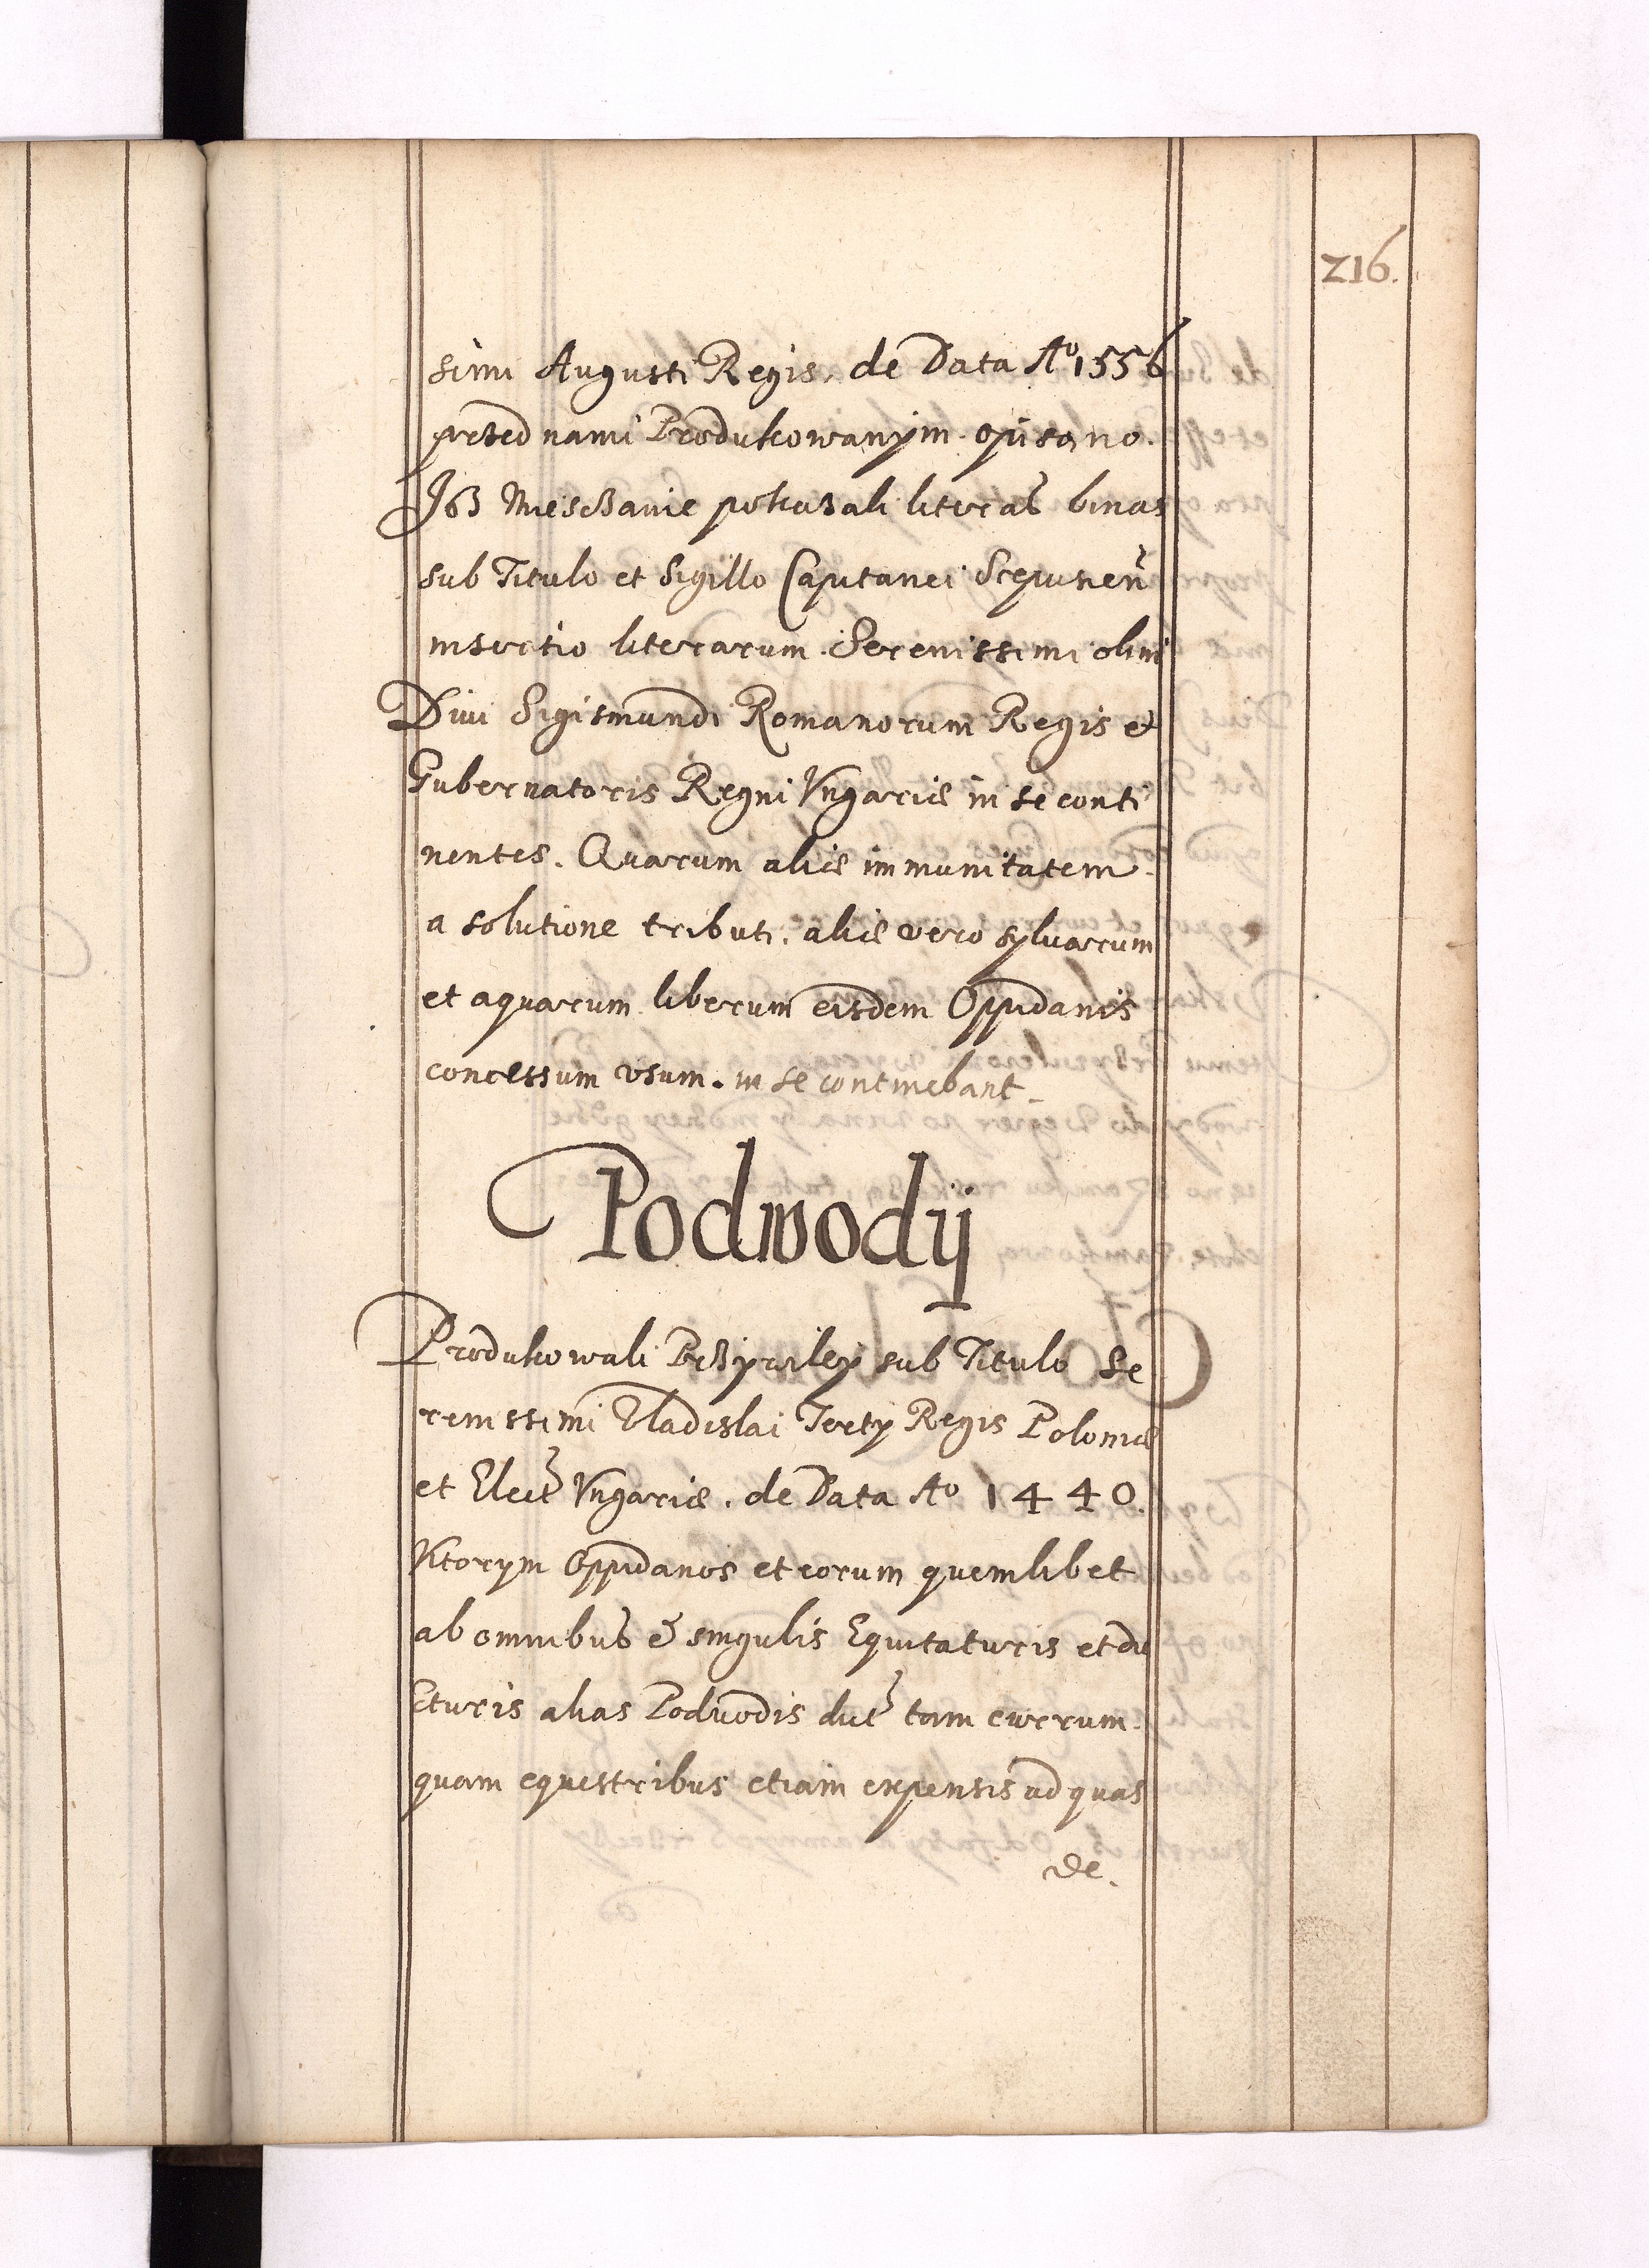 216.
simi Augusti Regis, de Data Aº 1556
przed nami Produkowanym opisano.
Ish Miesczanie pokazali literas binas
sub Titulo et Sigillo Capitanei Scepusien̄
insertio literarum Serenissimi olim
Divi Sigismundi Romanorum Regis et
Gubernatoris Regni Vngariæ in se conti
nentes. Quarum aliæ immunitatem
a solutione tributi, aliæ vero sylvarum
et aquarum liberum eisdem Oppidanis
concessum vsum. in se continebant
Podwody
Produkowali Przywiley sub Titulo Se
renissimi Vladislai Terty Regis Poloniæ
et Elect Vngariæ. de Data Aº 1440.
Ktorym Oppidanos et eorum quemlibet
ab omnibus & singulis Equitaturis et du
cturis alias Podvodis dict tam currum
quam equestribus etiam expensis ad quas
de.